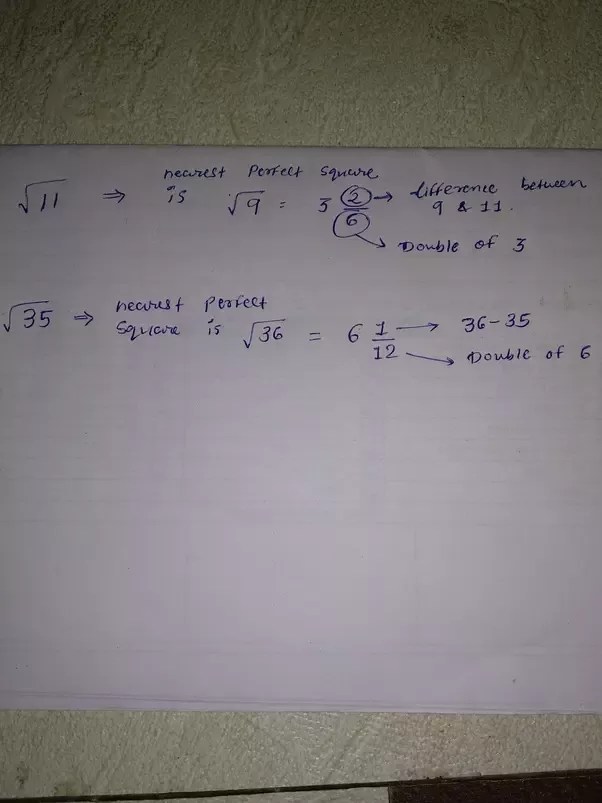 nearest Perfect Square
√11 ⇒ is √9 = 3 2/6 → difference between
9 & 11.
Double of 3
nearest Perfect
√35 ⇒ Square is √36 = 6 1/12 → 36-35
Double of 6